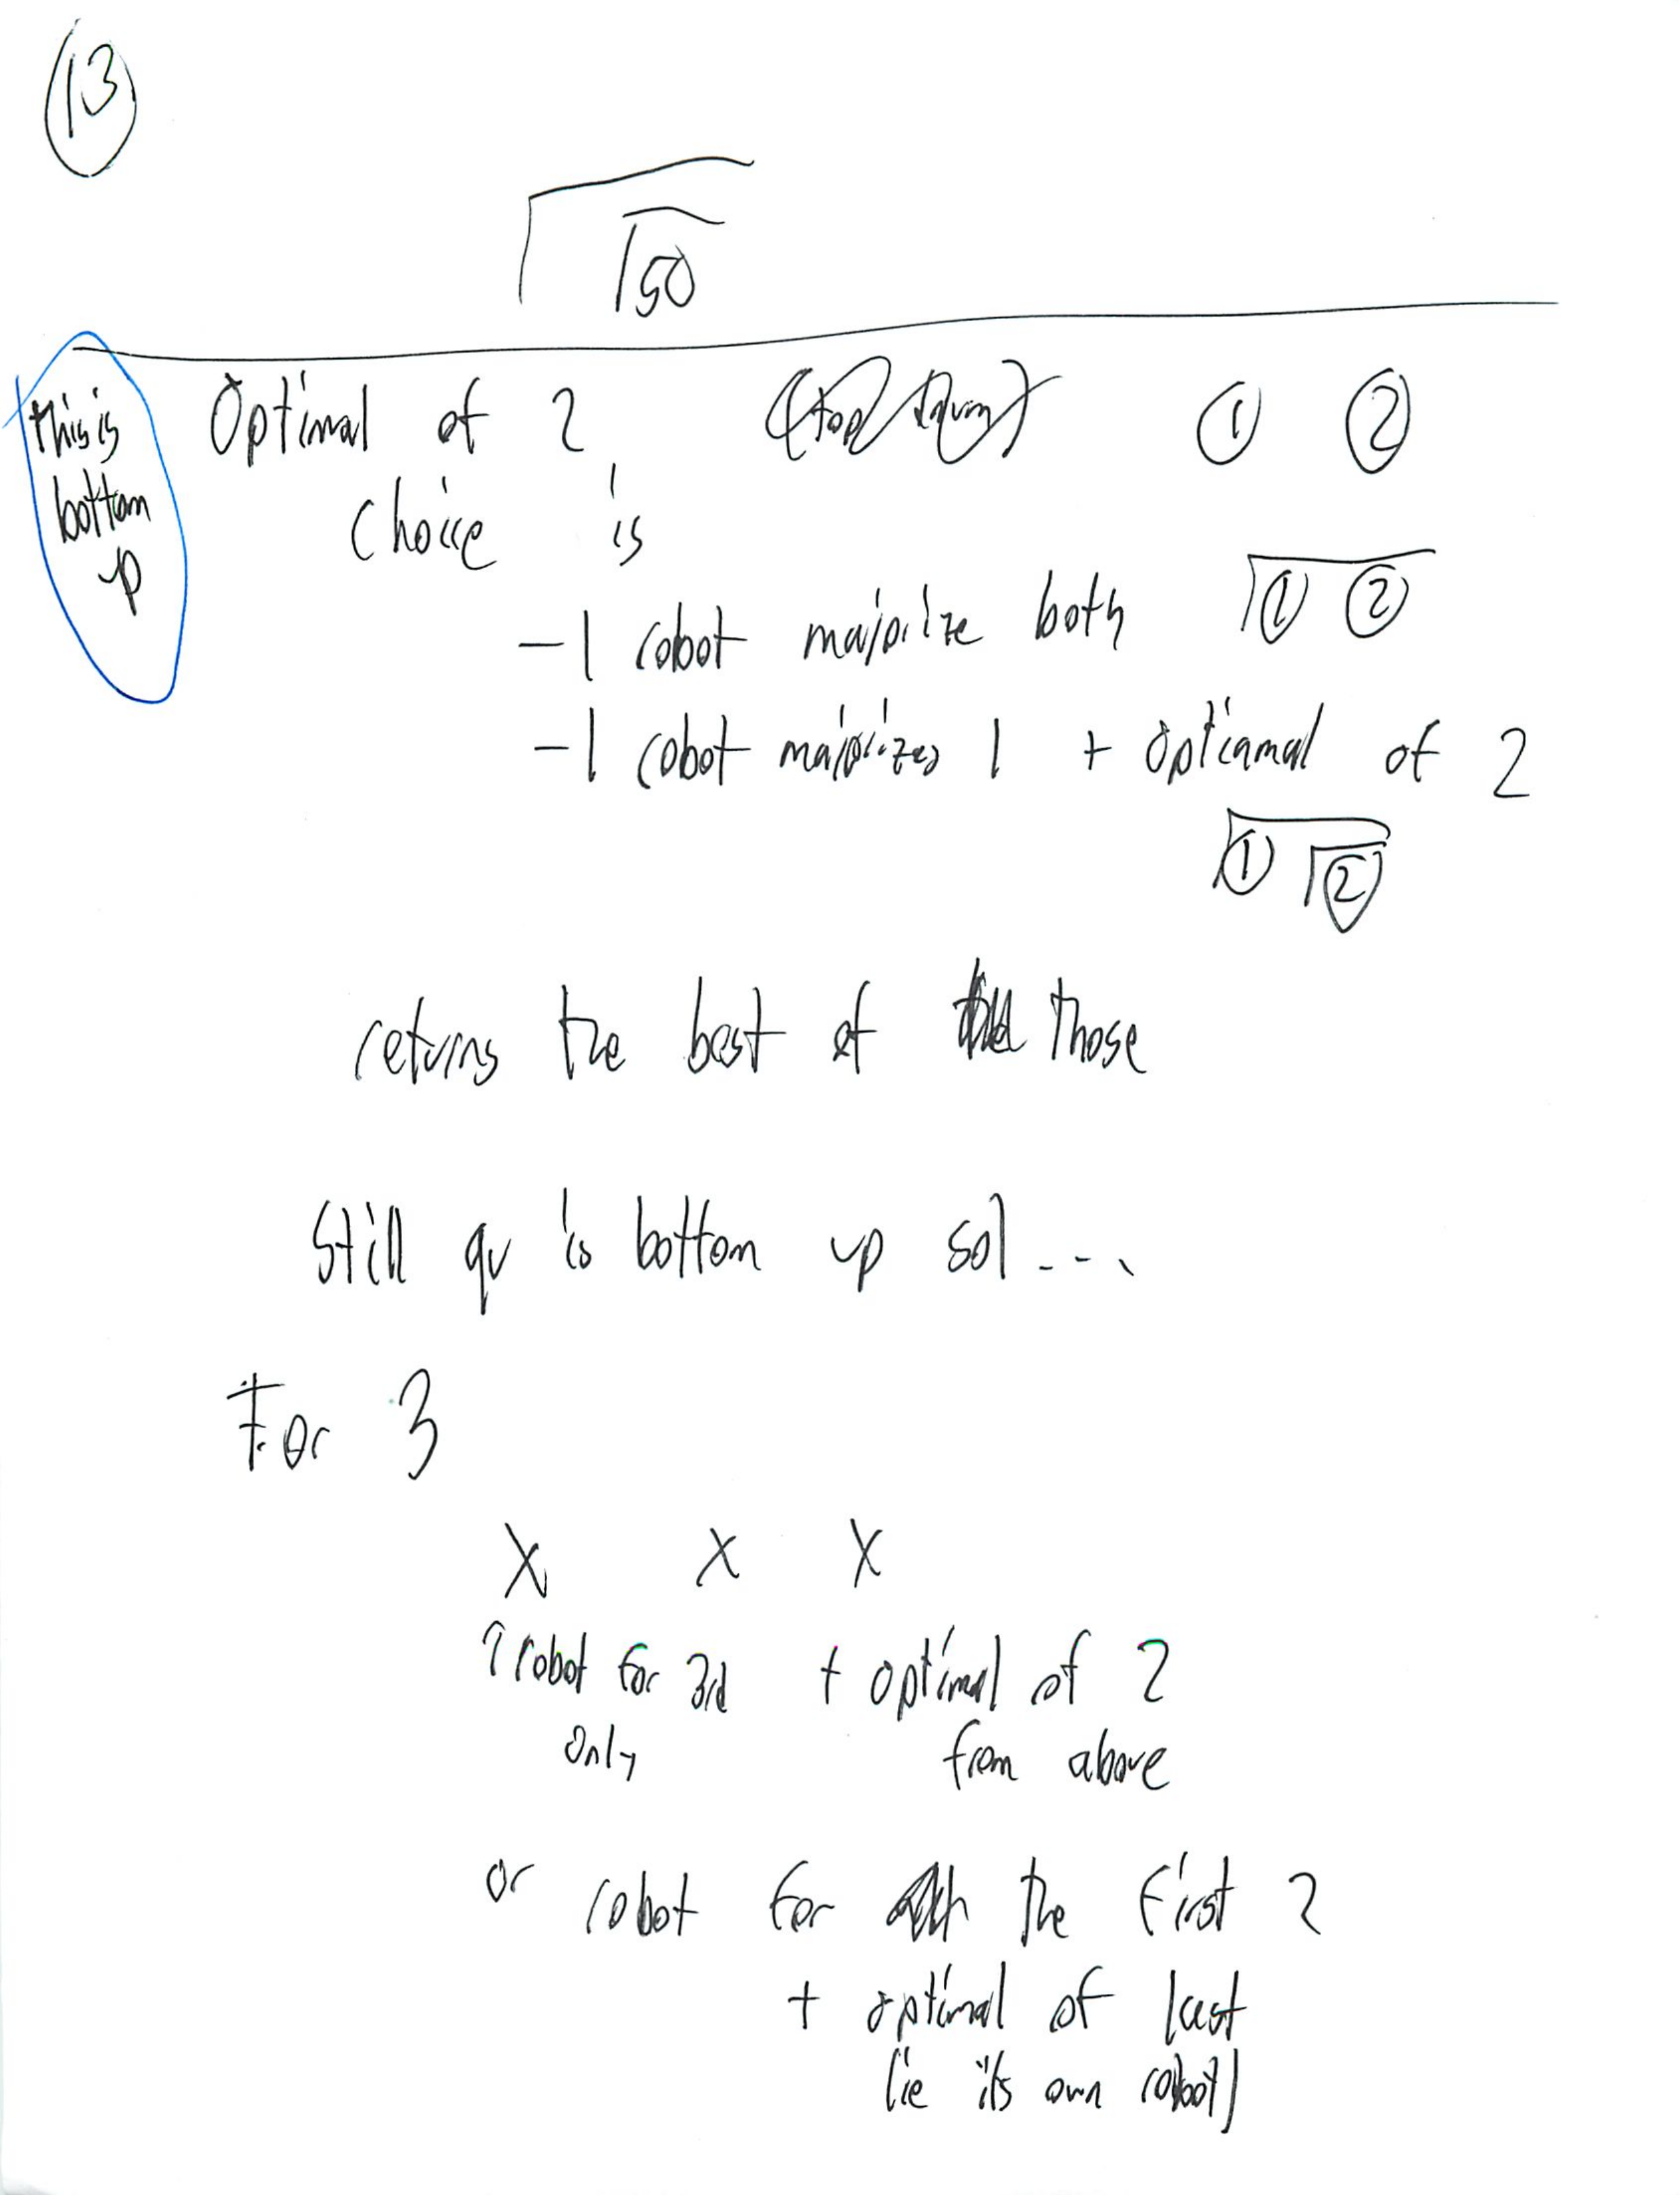 13
50
this is
bottom
up
Optimal of 2
① ②
choice is
-1 robot majorize both ① ②
-1 robot majorizes 1 + optiamal of 2
① ②
returns the best of those
Still qu is bottom up sol ...
For 3
X X X
1 robot for 3rd + optimal of 2
only from above
or robot for the first 2
+ optimal of last
(ie its own robot)